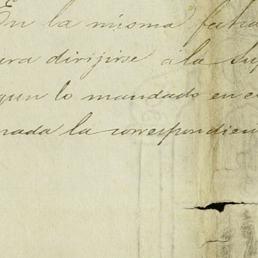 En la misma fecha
ara dirijirse á la Sup
egun lo mandado en e
nada la correspondien